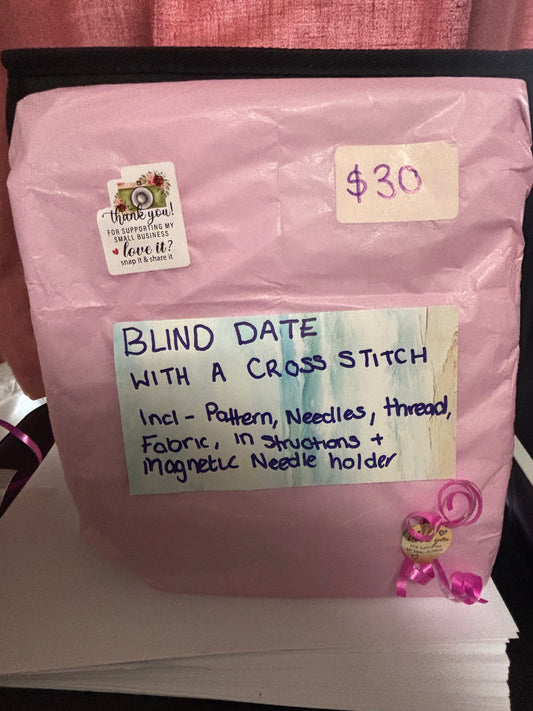 thank you!
FOR SUPPORTING MY
SMALL BUSINESS
love it?
snap it & share it
$30
BLIND DATE
WITH A CROSS STITCH
Incl - Pattern, Needles, thread,
Fabric, in structions +
Magnetic Needle holder
you
FOR SUPPORTING
MY SMALL BUSINESS